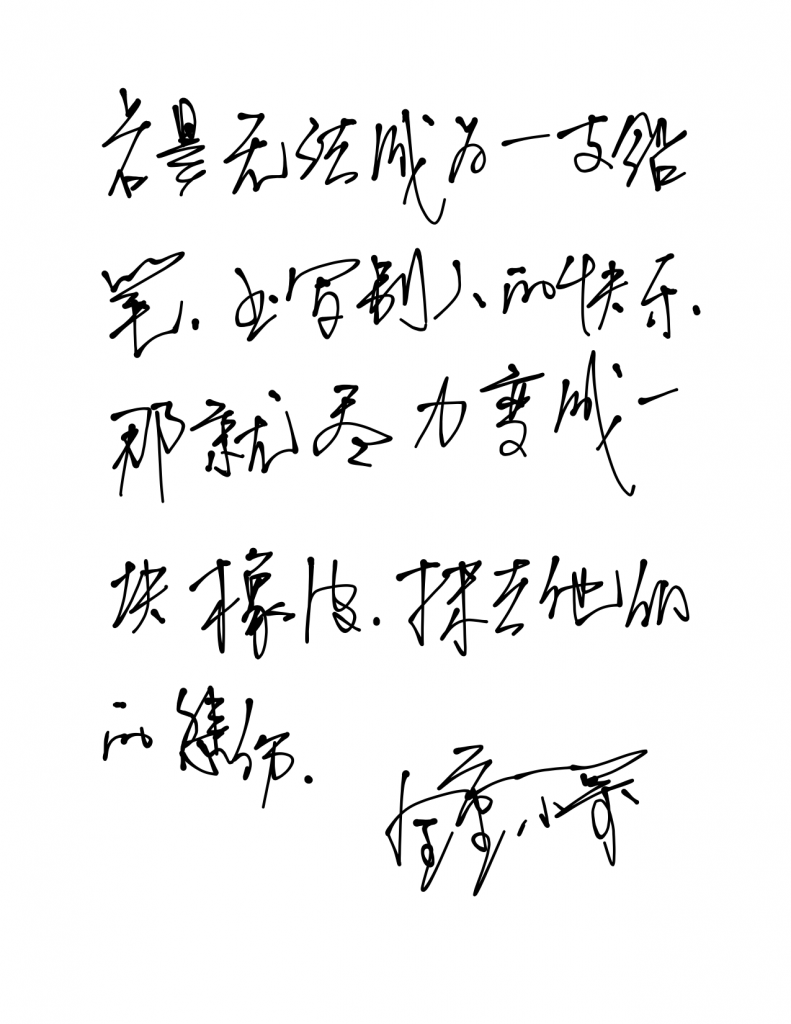 若是无法成为一支铅
笔.书写别人的快乐.
那就尽力变成一
块橡皮.抹去他们
的悲伤.